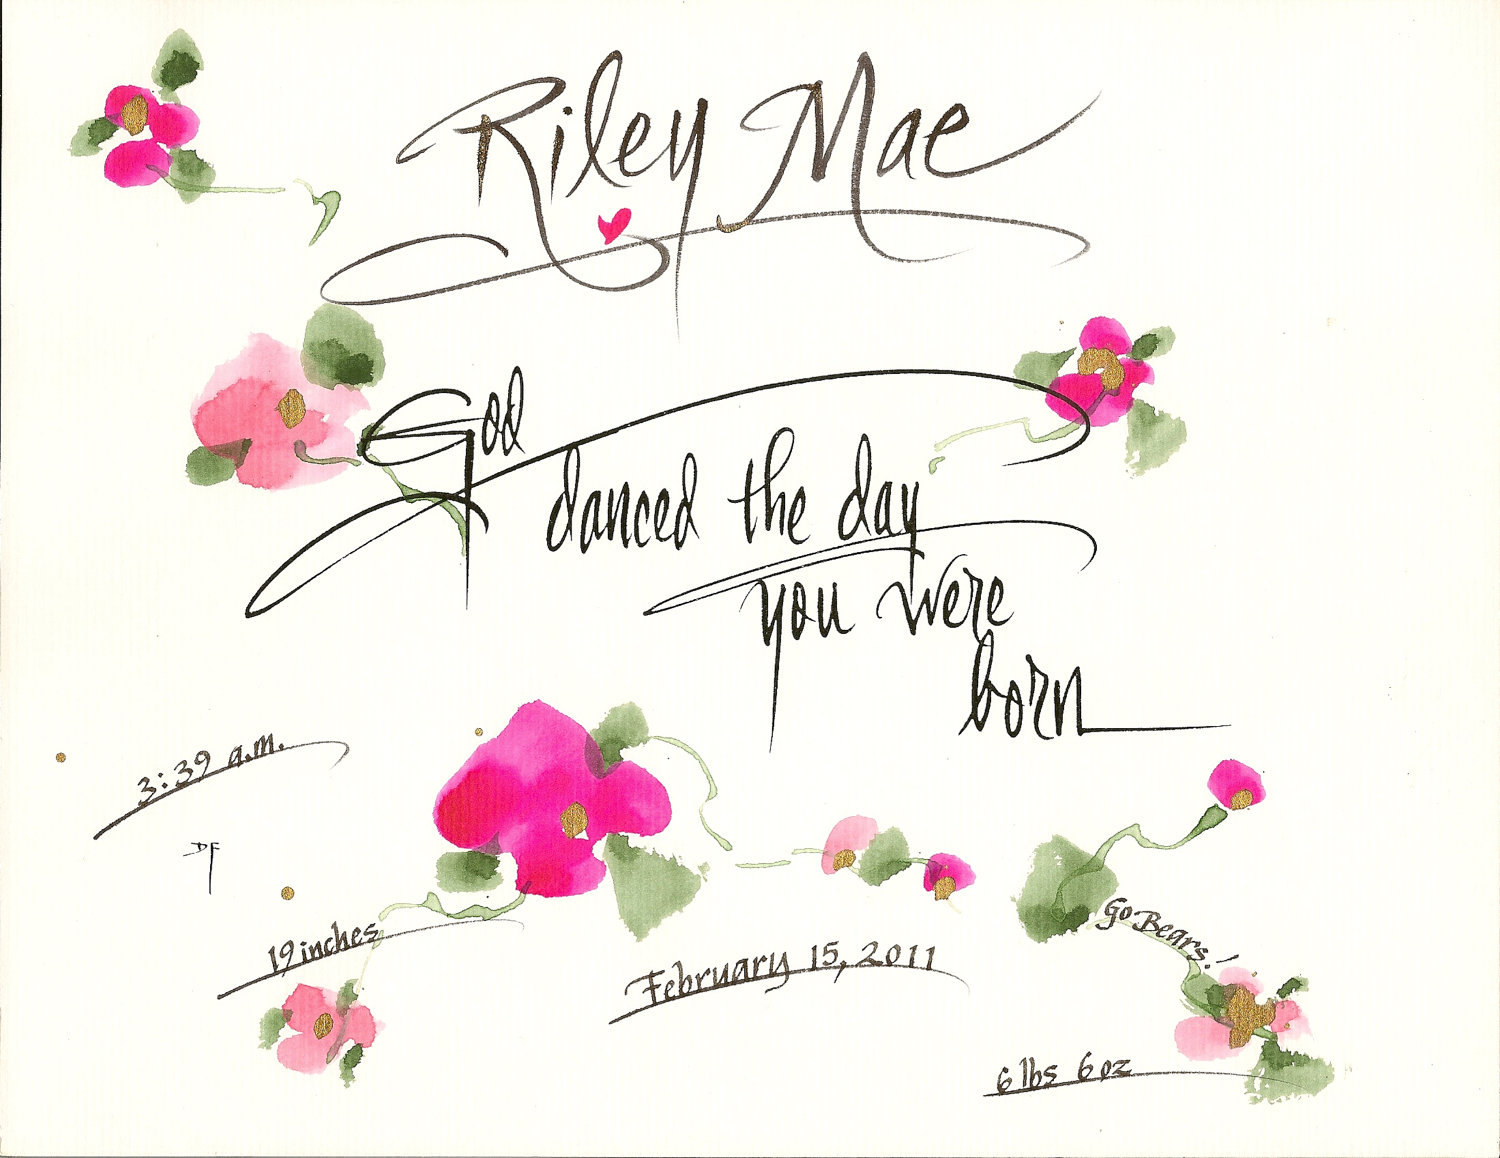 Riley Mae
God
danced the day
you were
born
3:39 a.m.
DF
19 inches
February 15, 2011
Go Bears!
6 lbs 6 oz